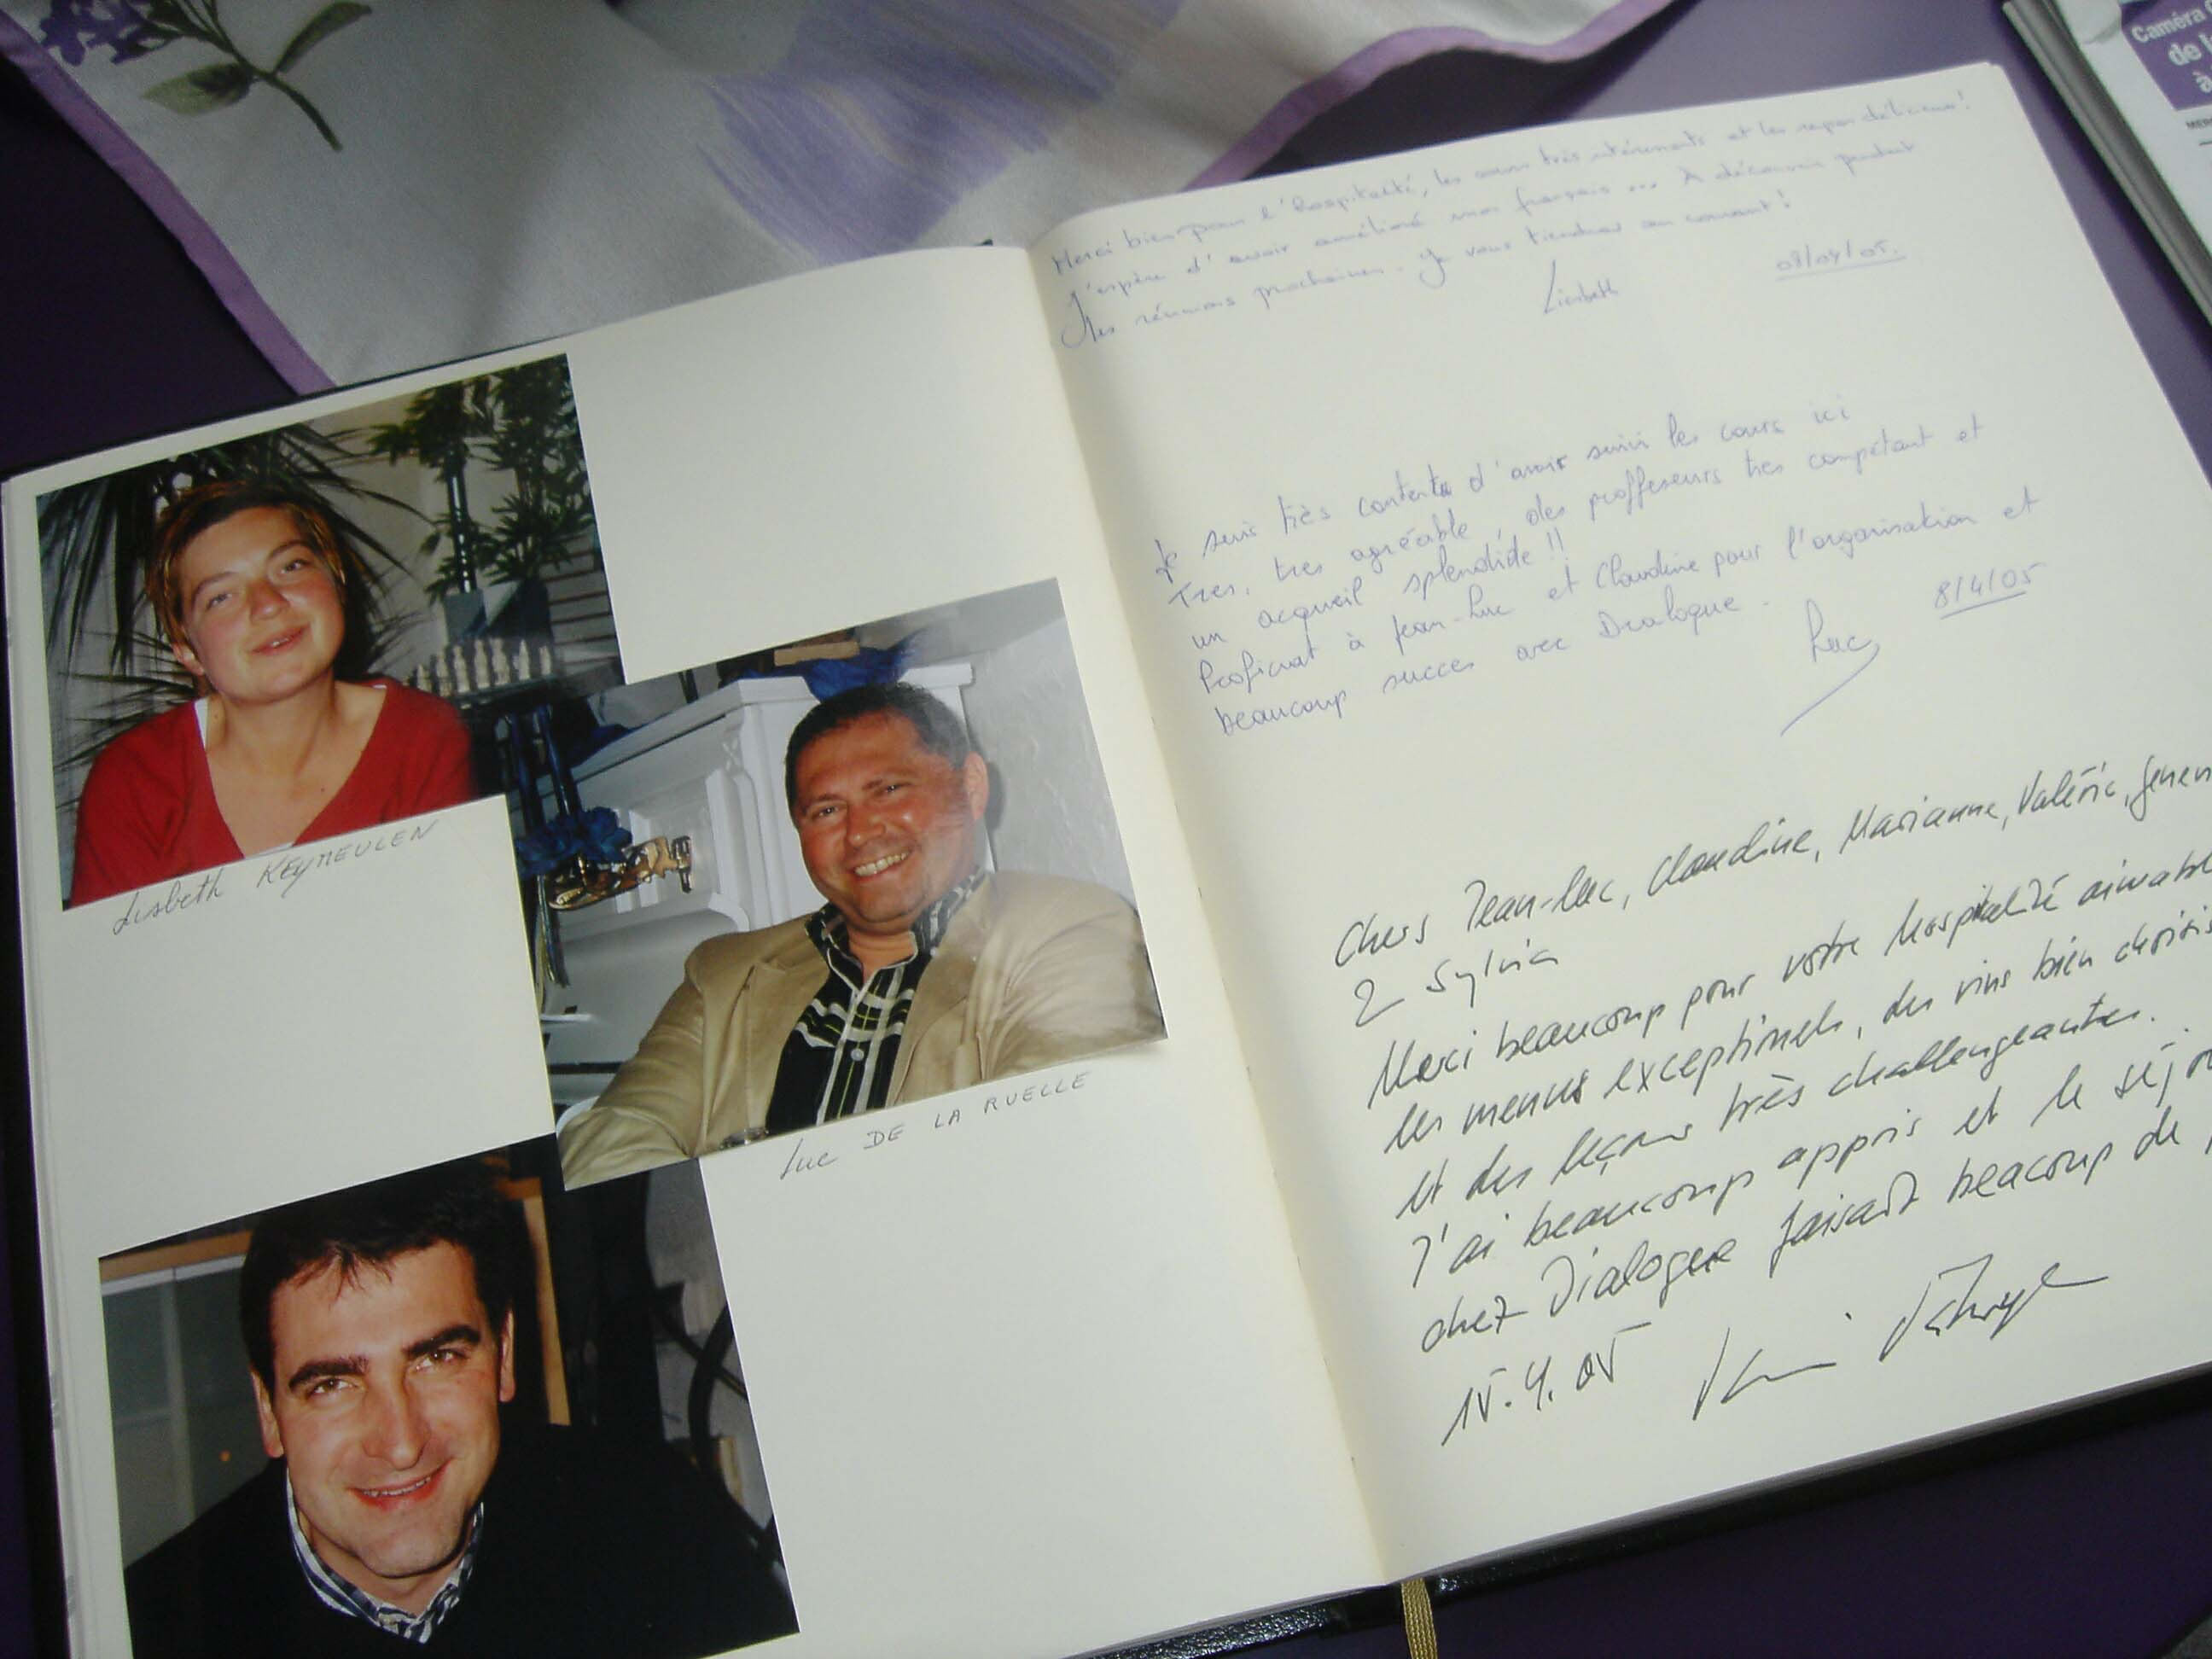 Lisbeth KEYMEULEN
Luc DE LA RUELLE
Merci bien pour l'hospitalité, les cours très intéressants et les repas délicieux!
J'espère d'avoir amélioré mon français ... A découvrir pendant
les réunions prochaines. Je vous tiendrai au courant!
Liesbeth
08/04/05.
Je suis très contente d'avoir suivi les cours ici
Tres, tres agréable, des proffeseurs tres compétant et
un acqueil splendide!!
Proficiat à Jean-Luc et Claudine pour l'organisation et
beaucoup succes avec Dialogue.
Luc
8/4/05
Chers Jean-Luc, Claudine, Marianne, Valérie,
& Sylvia
Merci beaucoup pour votre hospitalité aimable
les menus exceptionels, des vins bien choisis
et des leçons très challengeantes.
J'ai beaucoup appris et le séjo
chez Dialogue faisait beacoup de
15.4.05
Caméra
de
à